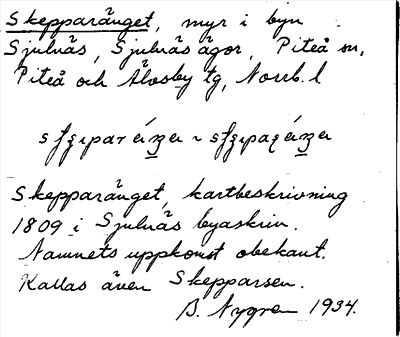 Skepparänget, myr i byn
Sjulnäs, Sjulnäs ägor, Piteå sn,
Piteå och Älvsby tg, Norrb. l
Skepparänget, kartbeskrivning
1809 i Sjulnäs byaskrin.
Namnets uppkomst obekant.
Kallas även Skepparsen.
B. Nygren 1934.